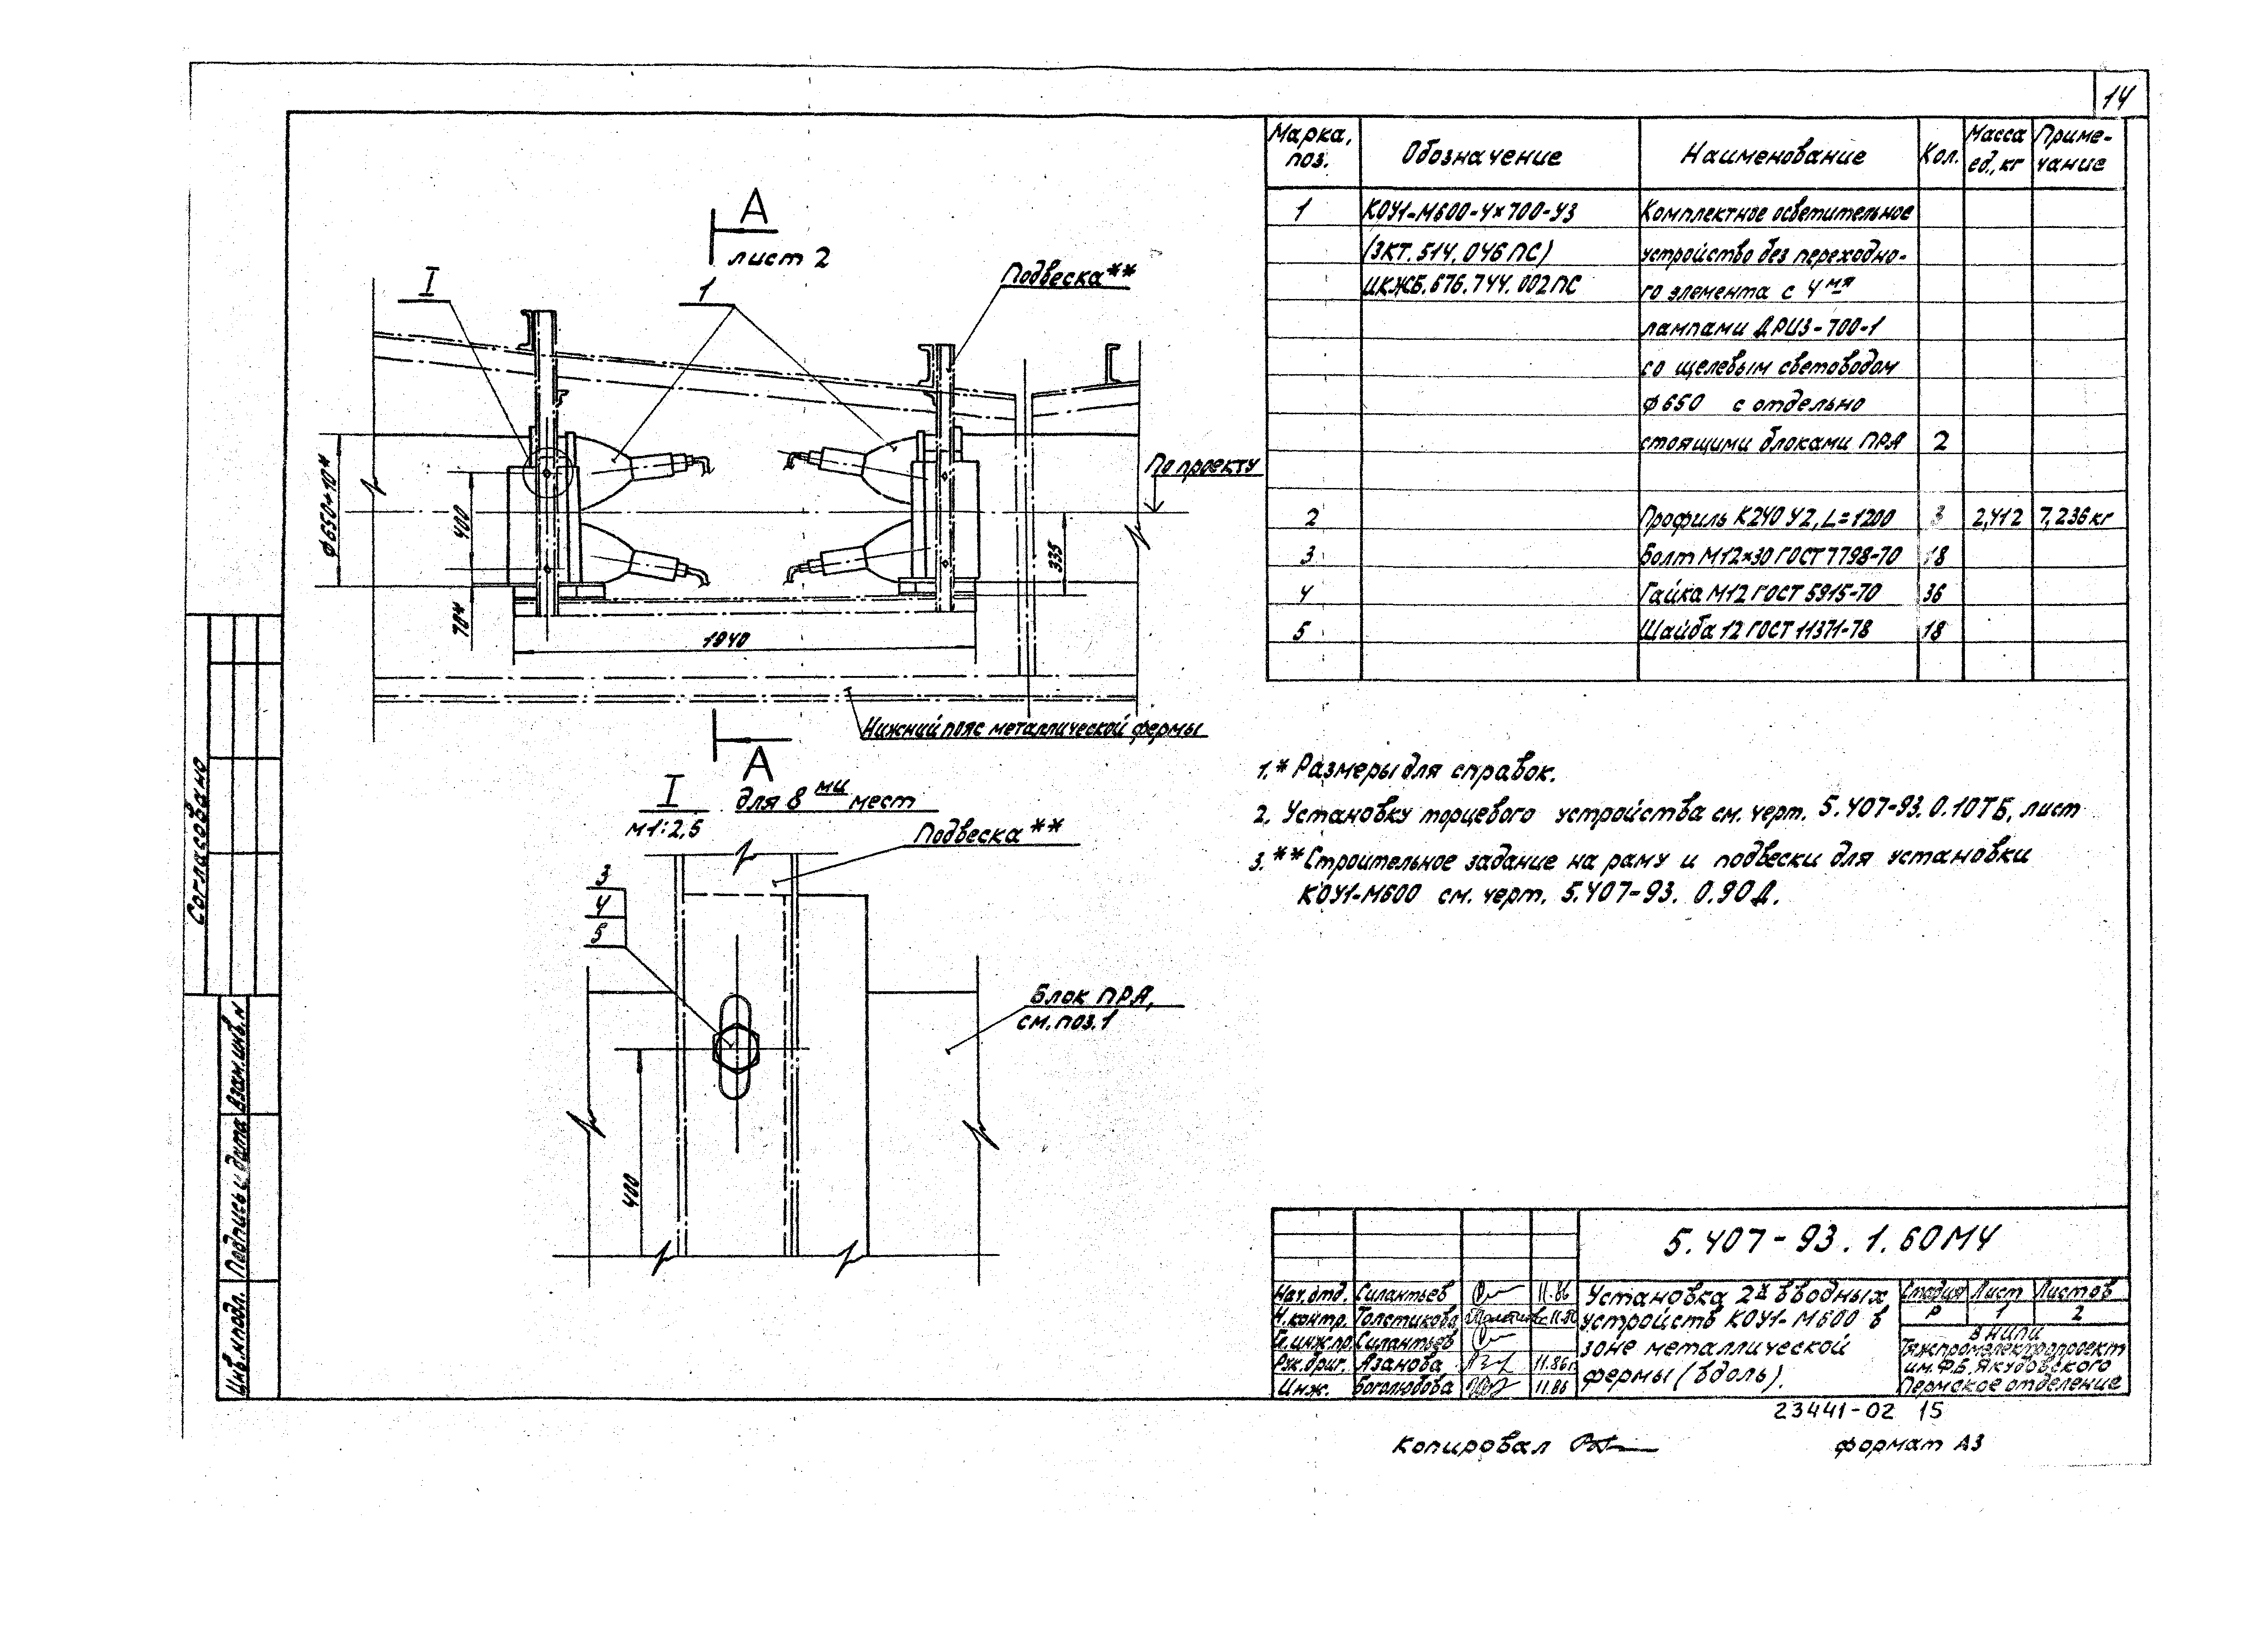 14
Марка, поз.	Обозначение	Наименование	Кол.	Масса ед., кг	Приме-чание
1	КОУ1-М600-4×700-У3	Комплектное осветительное
(3КТ. 514. 046 ПС)	устройство без переходно-
ИКЖБ. 676. 744. 002 ПС	го элемента с 4мя
лампами ДРИЗ-700-1
со щелевым световодом
ф 650 с отдельно
стоящими блоками ПРА	2
2	Профиль К240 У2, L=1200	3	2,412	7,236 кг
3	Болт М12×30 ГОСТ 7798-70	18
4	Гайка М12 ГОСТ 5915-70	36
5	Шайба 12 ГОСТ 11371-78	18
А
лист 2
I
1
Подвеска**
По проекту
ф 650+10*
400
70*
335
1940
Нижний пояс металлической фермы
А
I
М1:2,5
для 8ми мест
Подвеска**
3
4
5
Блок ПРА,
см. поз. 1
400
1.* Размеры для справок.
2. Установку торцевого устройства см. черт. 5.407-93.0.10ТБ, лист
3.** Строительное задание на раму и подвески для установки
КОУ1-М600 см. черт. 5.407-93. 0.90Д.
Согласовано
Взам. инв. N
Подпись и дата
Инв. N подл.
5.407-93.1.60МЧ
Нач. отд.	Силантьев	11.86
Н. контр.	Толстикова	11.86
Гл. инж. пр.	Силантьев
Рук. бриг.	Азанова	11.86г
Инж.	Боголюбова	11.86
Установка 2х вводных
устройств КОУ1-М600 в
зоне металлической
фермы (вдоль).
Стадия	Лист	Листов
Р	1	2
ВНИПИ
Тяжпромэлектропроект
им. Ф.Б. Якубовского
Пермское отделение
23441-02 15
Копировал
формат А3